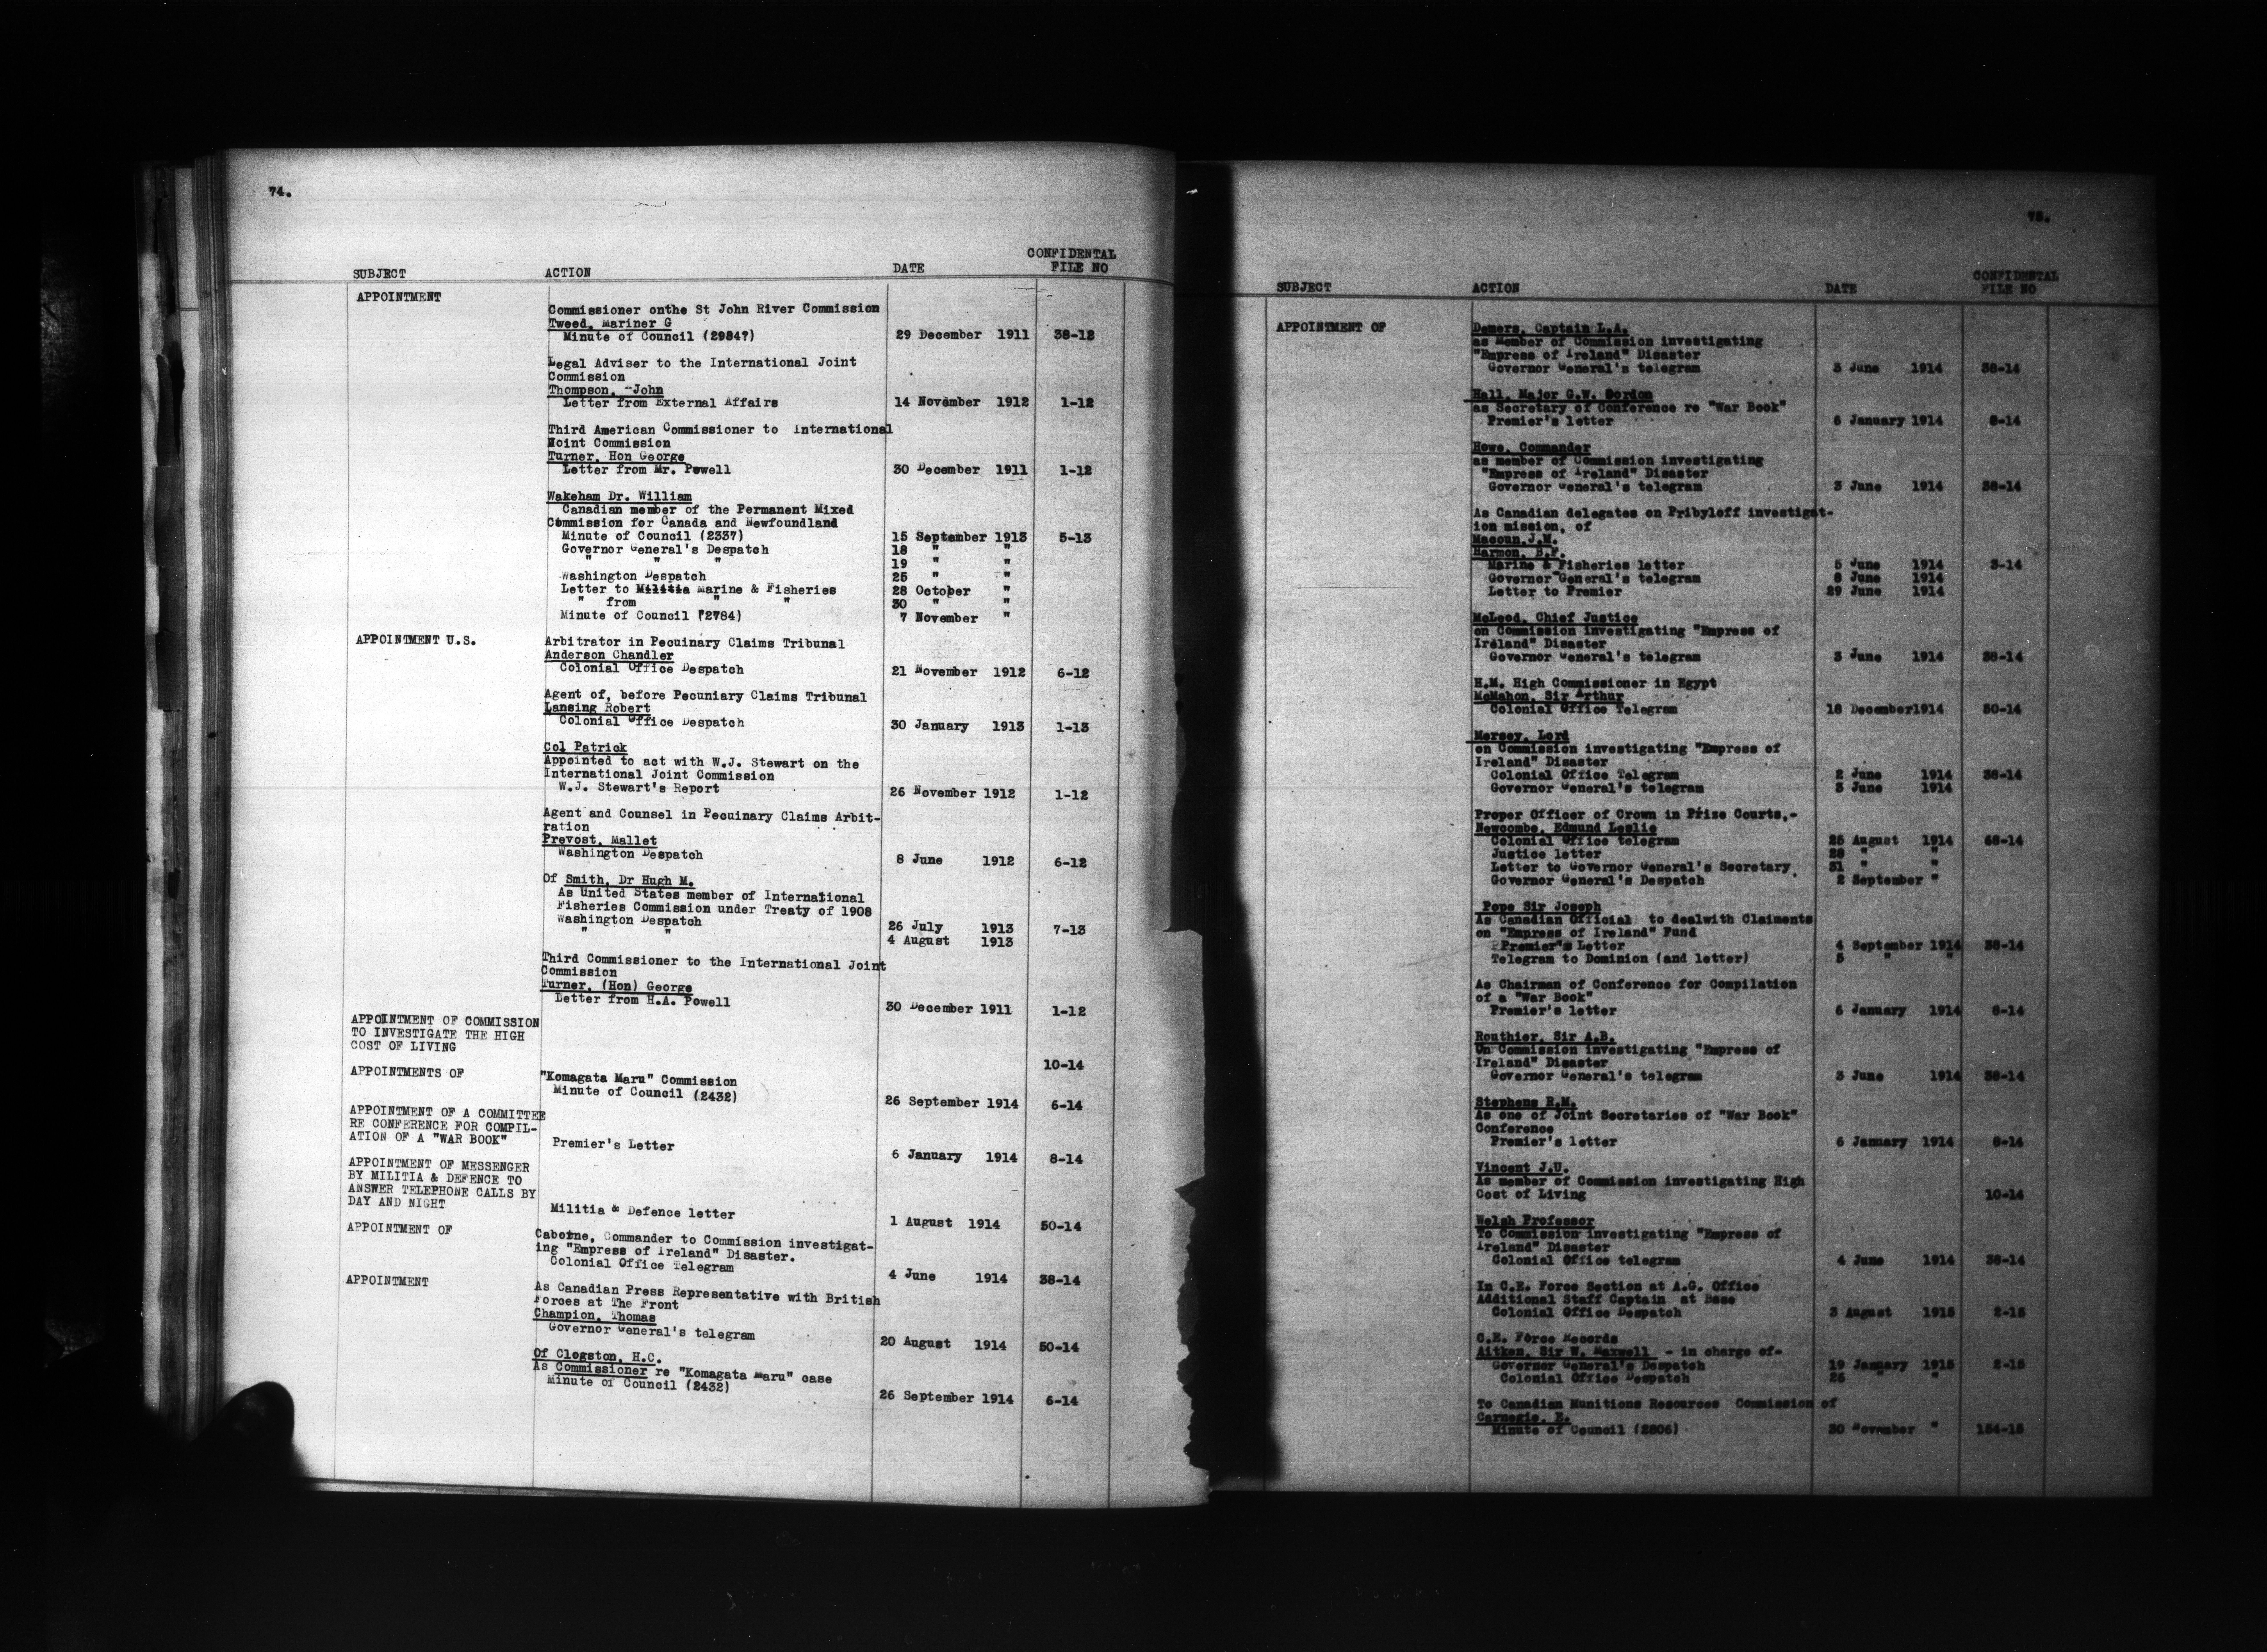 74.
CONFIDENTAL
SUBJECT ACTION DATE FILE NO
APPOINTMENT
Commissioner onthe St John River Commission
Tweed, Mariner G
Minute of Council (2984?) 29 December 1911 38-12
Legal Adviser to the International Joint
Commission
Thompson, -John
Letter from External Affairs 14 November 1912 1-12
Third American Commissioner to International
Noint Commission
Turner, Hon George
Letter from Mr. Powell 30 December 1911 1-12
Wakeham Dr. William
Canadian member of the Permanent Mixed
Commission for Canada and Newfoundland
Minute of Council (2337) 15 September 1913 5-13
Governor General's Despatch 18 " "
" " " 19 " "
Washington Despatch 25 " "
Letter to Militia Marine & Fisheries 28 October "
" from " " 30 " "
Minute of Council (2784) 7 November "
APPOINTMENT U.S. Arbitrator in Pecuinary Claims Tribunal
Anderson Chandler
Colonial Office Despatch 21 November 1912 6-12
Agent of, before Pecuniary Claims Tribunal
Lansing Robert
Colonial Office Despatch 30 January 1913 1-13
Col Patrick
Appointed to act with W.J. Stewart on the
International Joint Commission
W.J. Stewart's Report 26 November 1912 1-12
Agent and Counsel in Pecuinary Claims Arbit-
ration
Prevost, Mallet
Washington Despatch 8 June 1912 6-12
Of Smith, Dr Hugh M.
As United States member of International
Fisheries Commission under Treaty of 1908
Washington Despatch 26 July 1913 7-13
" " 4 August 1913
Third Commissioner to the International Joint
Commission
Turner, (Hon) George
Letter from H.A. Powell 30 December 1911 1-12
APPOINTMENT OF COMMISSION
TO INVESTIGATE THE HIGH
COST OF LIVING
10-14
APPOINTMENTS OF "Komagata Maru" Commission
Minute of Council (2432) 26 September 1914 6-14
APPOINTMENT OF A COMMITTEE
RE CONFERENCE FOR COMPIL-
ATION OF A "WAR BOOK" Premier's Letter 6 January 1914 8-14
APPOINTMENT OF MESSENGER
BY MILITIA & DEFENCE TO
ANSWER TELEPHONE CALLS BY
DAY AND NIGHT Militia & Defence letter 1 August 1914 50-14
APPOINTMENT OF Caborne, Commander to Commission investigat-
ing "Empress of Ireland" Disaster.
Colonial Office Telegram 4 June 1914 38-14
APPOINTMENT As Canadian Press Representative with British
Forces at The Front
Champion, Thomas
Governor General's telegram 20 August 1914 50-14
Of Clogston, H.C.
As Commissioner re "Komagata Maru" case
Minute of Council (2432) 26 September 1914 6-14
75.
CONFIDENTAL
SUBJECT ACTION DATE FILE NO
APPOINTMENT OF Demers, Captain L.A.
as Member of Commission investigating
"Empress of Ireland" Disaster
Governor General's telegram 3 June 1914 38-14
Hall, Major G.W. Gordon
as Secretary of Conference re "War Book"
Premier's letter 6 January 1914 8-14
Howe, Commander
as member of Commission investigating
"Empress of Ireland" Disaster
Governor General's telegram 3 June 1914 38-14
As Canadian delegates on Pribyloff investigat-
ion mission, of
Macoun,J.M.
Harmon, B.F.
Marine & Fisheries letter 5 June 1914 3-14
Governor General's telegram 8 June 1914
Letter to Premier 29 June 1914
McLeod, Chief Justice
on Commission investigating "Empress of
Ireland" Disaster
Governor General's telegram 3 June 1914 38-14
H.M. High Commissioner in Egypt
McMahon, Sir Arthur
Colonial Office Telegram 18 December1914 50-14
Mersey, Lord
on Commission investigating "Empress of
Ireland" Disaster
Colonial Office Telegram 2 June 1914 38-14
Governor General's telegram 3 June 1914
Proper Officer of Crown in Prize Courts,-
Newcombe, Edmund Leslie
Colonial Office telegram 25 August 1914 68-14
Justice letter 28 " "
Letter to Governor General's Secretary 31 " "
Governor General's Despatch 2 September "
Pope Sir Joseph
As Canadian Official to dealwith Claiments
on "Empress of Ireland" Fund
Premier's Letter 4 September 1914 38-14
Telegram to Dominion (and letter) 5 " "
As Chairman of Conference for Compilation
of a "War Book"
Premier's letter 6 January 1914 8-14
Routhier, Sir A.B.
On Commission investigating "Empress of
Ireland" Disaster
Governor General's telegram 3 June 1914 38-14
Stephens R.M.
As one of Joint Secretaries of "War Book"
Conference
Premier's letter 6 January 1914 8-14
Vincent J.U.
As member of Commission investigating High
Cost of Living 10-14
Welsh Professor
To Commission investigating "Empress of
Ireland" Disaster
Colonial Office telegram 4 June 1914 38-14
In C.E. Force Section at A.G. Office
Additional Staff Captain at Base
Colonial Office Despatch 3 August 1915 2-15
C.E. Force Records
Aitken, Sir W. Maxwell - in charge of-
Governor General's Despatch 19 January 1915 2-15
Colonial Office Despatch 26 " "
To Canadian Munitions Resources Commission of
Carnegie, E.
Minute of Council (2806) 30 November " 154-15